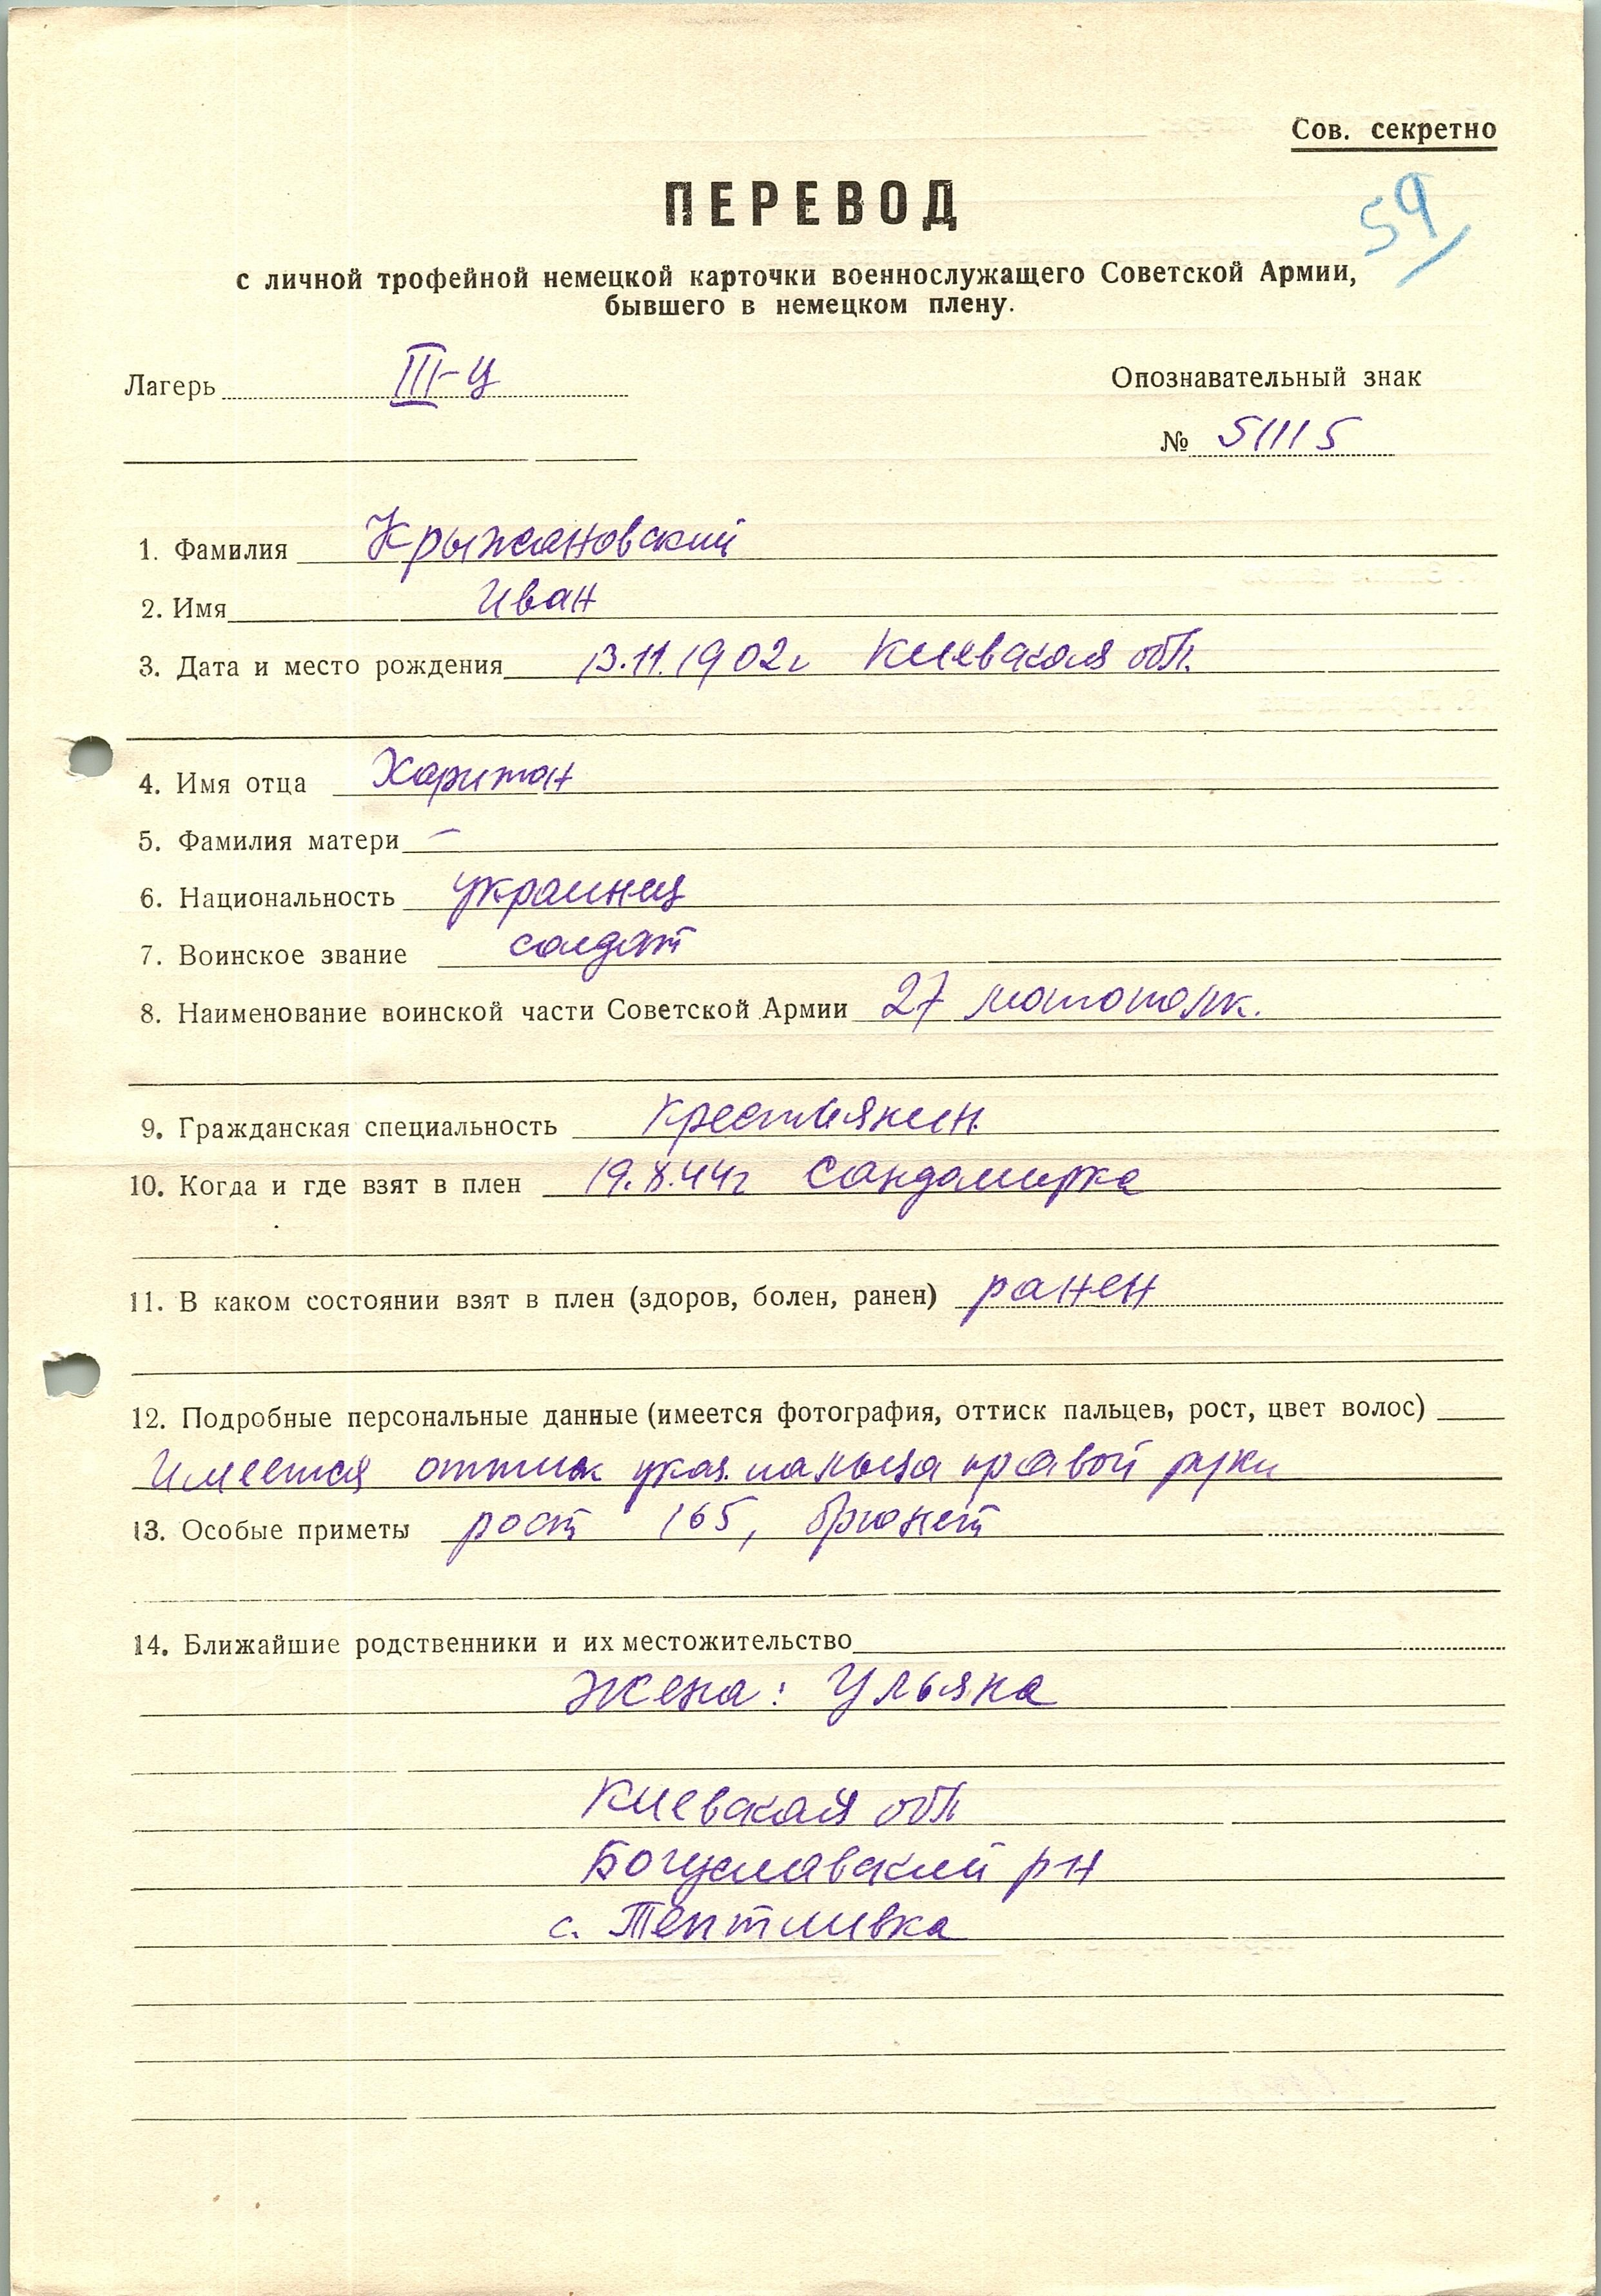 Сов. секретно
59
ПЕРЕВОД
с личной трофейной немецкой карточки военнослужащего Советской Армии,
бывшего в немецком плену.
Лагерь III-Ц
Опознавательный знак
№ 51115
1. Фамилия Крыжановский
2. Имя Иван
3. Дата и место рождения 13.11.1902г Киевская обл.
4. Имя отца Харитон
5. Фамилия матери –
6. Национальность украинец
7. Воинское звание солдат
8. Наименование воинской части Советской Армии 27 мотополк.
9. Гражданская специальность Крестьянин
10. Когда и где взят в плен 19.8.44г Сандомирка
11. В каком состоянии взят в плен (здоров, болен, ранен) ранен
12. Подробные персональные данные (имеется фотография, оттиск пальцев, рост, цвет волос)
Имеется оттиск указ. пальца правой руки
13. Особые приметы рост 165, брюнет
14. Ближайшие родственники и их местожительство
Жена: Ульяна
Киевская обл
Богуславский р-н
с. Тептиивка